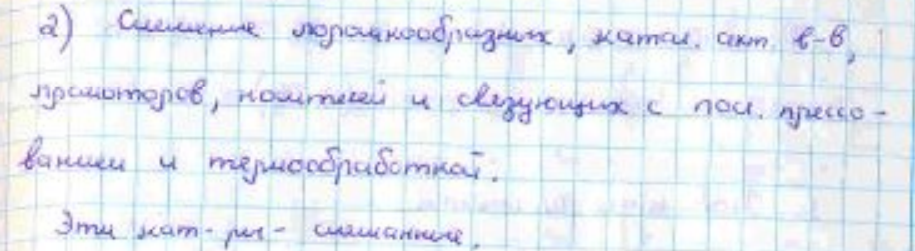 2) Смешение порошкообразных, катал. акт. в-в,
промоторов, носителей и связующих с посл. прессо-
ванием и термообработкой.
Эти кат-ры - смешанные.